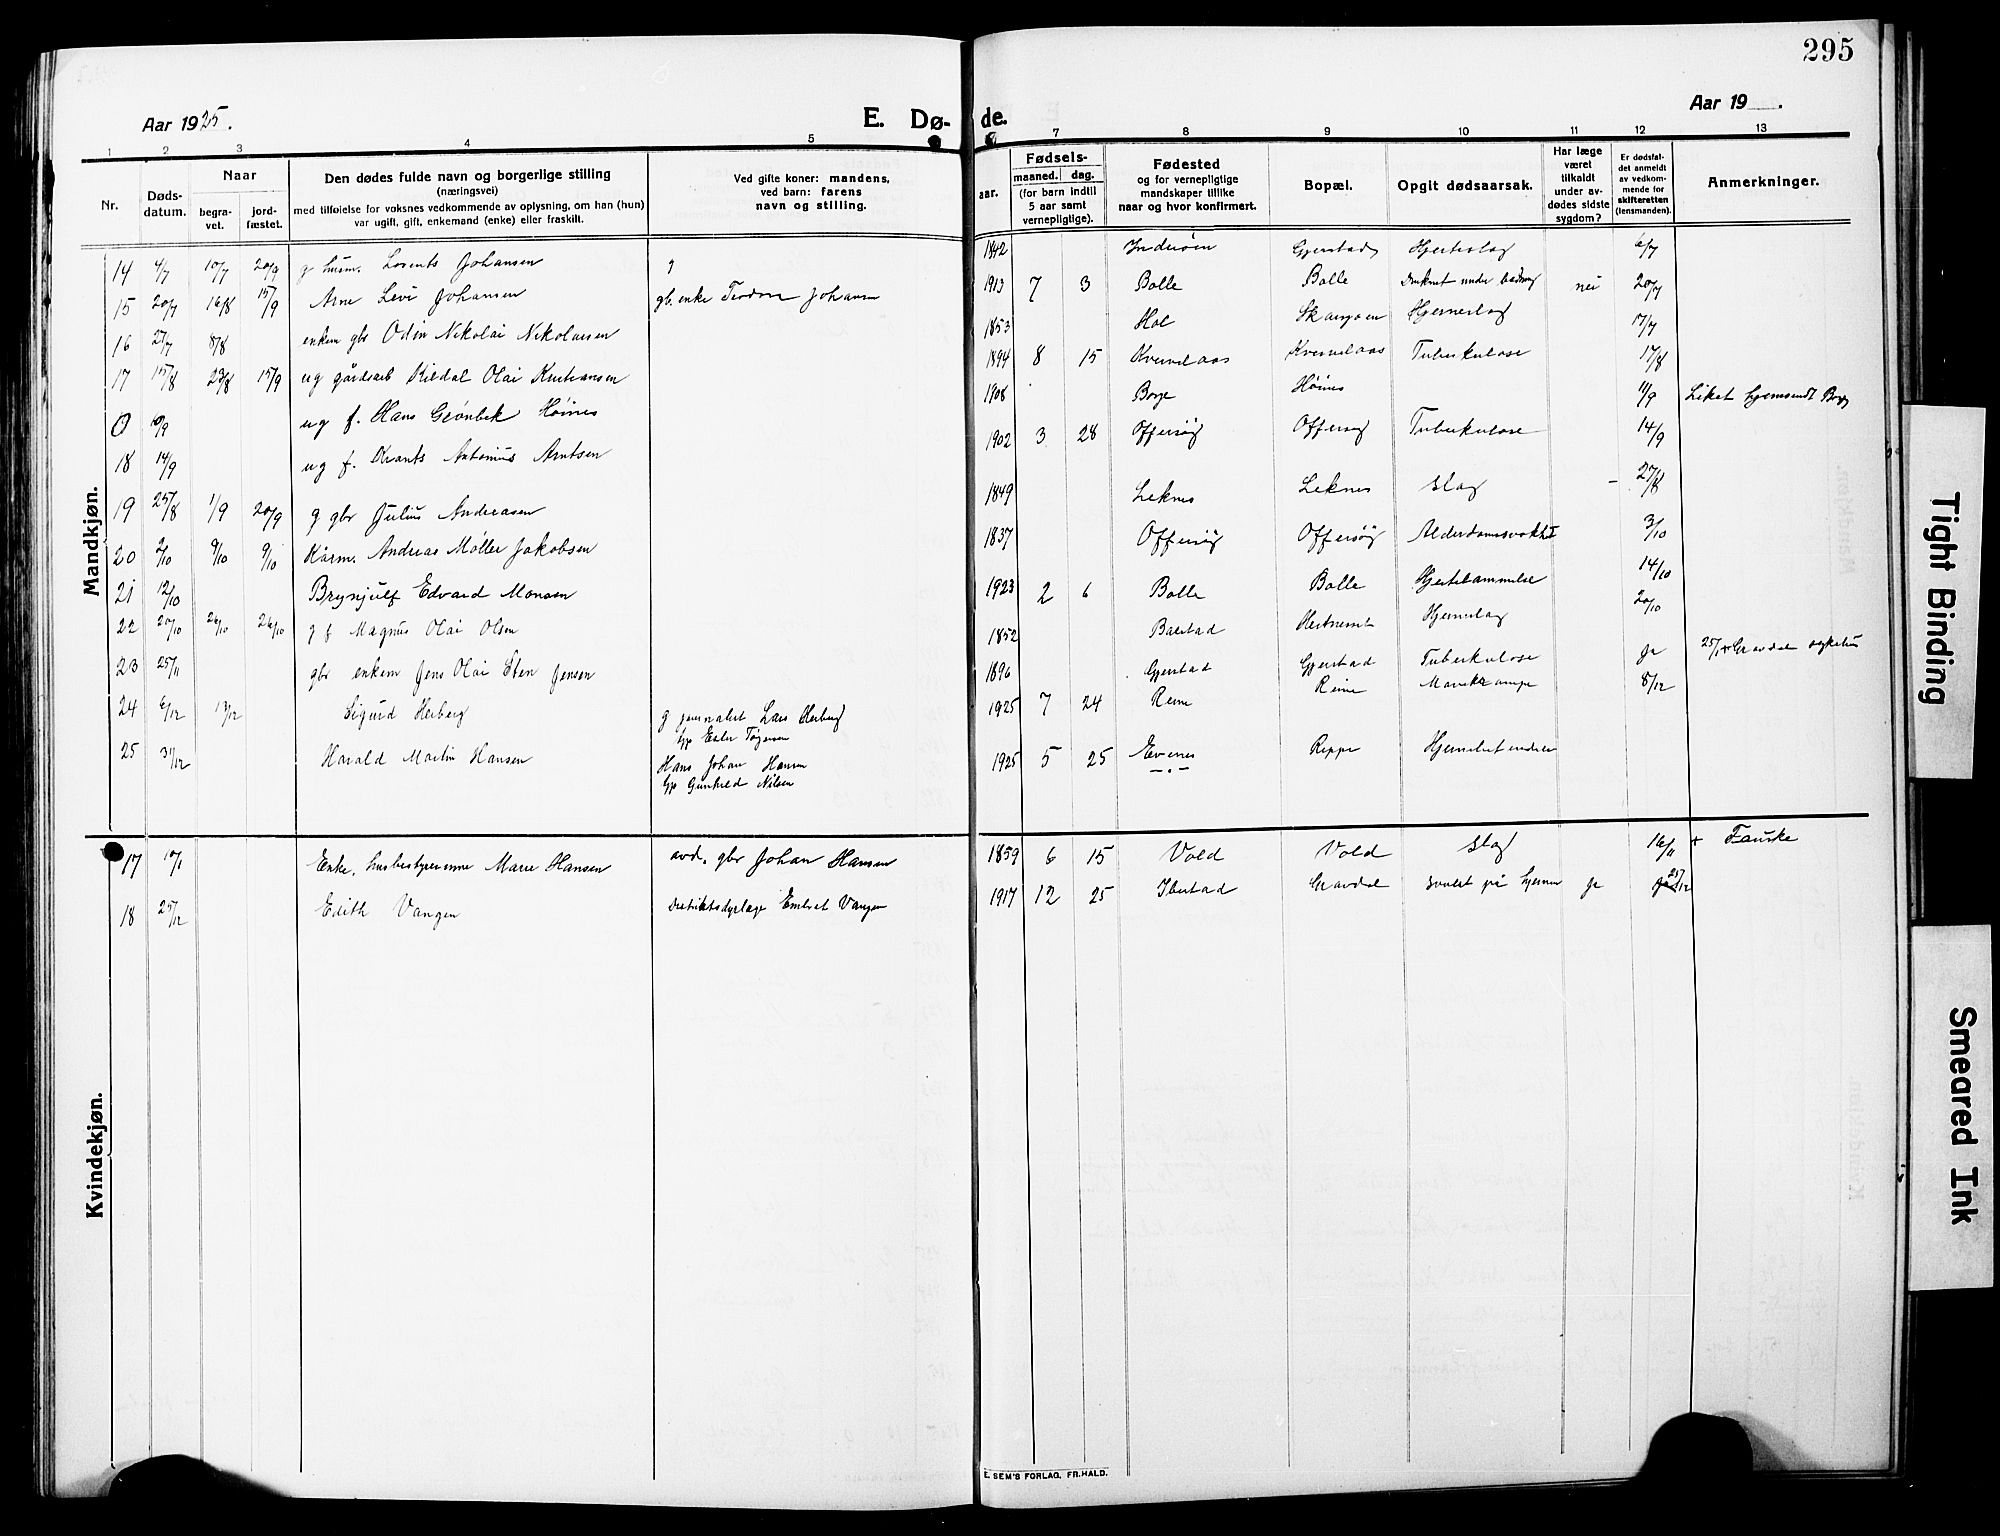 295
Aar 1925.
E. Dø-
de.
Aar 19 .
1 2 3 4 5 7 8 9 10 11 12 13
Nr.
Døds-
datum.
Naar
begra-
vet.
jord-
fæstet.
Den dødes fulde navn og borgerlige stilling
(næringsvei)
med tilføielse for voksnes vedkommende av oplysning, om han (hun)
var ugift, gift, enkemand (enke) eller fraskilt.
Ved gifte koner: mandens,
ved barn: farens
navn og stilling.
aar.
Fødsels-
maaned. dag.
(for barn indtil
5 aar samt
vernepligtige).
Fødested
og for vernepligtige
mandskaper tillike
naar og hvor konfirmert.
Bopæl.
Opgit dødsaarsak.
Har læge
været
tilkaldt
under av-
dødes sidste
sygdom?
Er dødsfal-
det anmeldt
av vedkom-
mende for
skifteretten
(lensmanden).
Anmerkninger.
Mandkjøn.
14 4/7 10/7 20/9 g husm. Lorents Johansen 1842 Inderøen Gjerstad Hjerteslag 6/7
15 20/7 16/8 15/9 Arne Levi Johansen gb. enke Johansen 1913 7 3 Bolle Bolle Druknet under badning nei 20/7
16 27/7 8/8 enkem gbr Odin Nikolai Nikolaisen 1853 Hol Hjerneslag 17/7
17 15/8 23/8 15/9 ug gårdsarb Olai Kristiansen 1894 8 15 Kvervelaas Tuberkulose 17/8
0 8/9 ug f. Hans Grønbek Høines 1908 Borge Høines 11/9 Liket hjemsendt Borge
18 14/9 ug f. Krants Antonius Arntsen 1902 3 28 Offersøy Offersøy Tuberkulose 14/9
19 25/8 1/9 20/9 g gbr Julius Andreasen 1849 Leknes Leknes slag - 27/8
20 2/10 9/10 9/10 Kårm. Andreas Møller Jakobsen 1837 Offersøy Offersøy Alderdomssvakhet 3/10
21 12/10 Brynjulf Edvard Monsen 1923 2 6 Bolle Bolle 14/10
22 20/10 26/10 26/10 g f Magnus Olai Olsen 1852 Hjerneslag 20/10
23 25/11 gbr enkem Jens Olai Sten Jensen 1896 Gjerstad Gjerstad Tuberkulose ja Gravdal sykehus
24 6/12 Sigurd Herberg g journalist Lars Herberg 1925 7 24 Reine Reine Mavekrampe 8/12
25 31/12 Harald Martin Hansen Hans Johan Hansen 1925 5 25 Evenes
Nilsen
Kvindekjøn.
17 Enke, husbestyrerinne Marie Hansen avd. gbr Johan Hansen 1859 6 15 Vold Vold slag 16/11 + Fauske
18 25/12 Edith Vangen distriktsdyrlæge Vangen 1917 12 25 Ibestad Gravdal svulst på hjernen ja
E. SEM'S FORLAG, FR.HALD.
Tight Binding
Smeared Ink